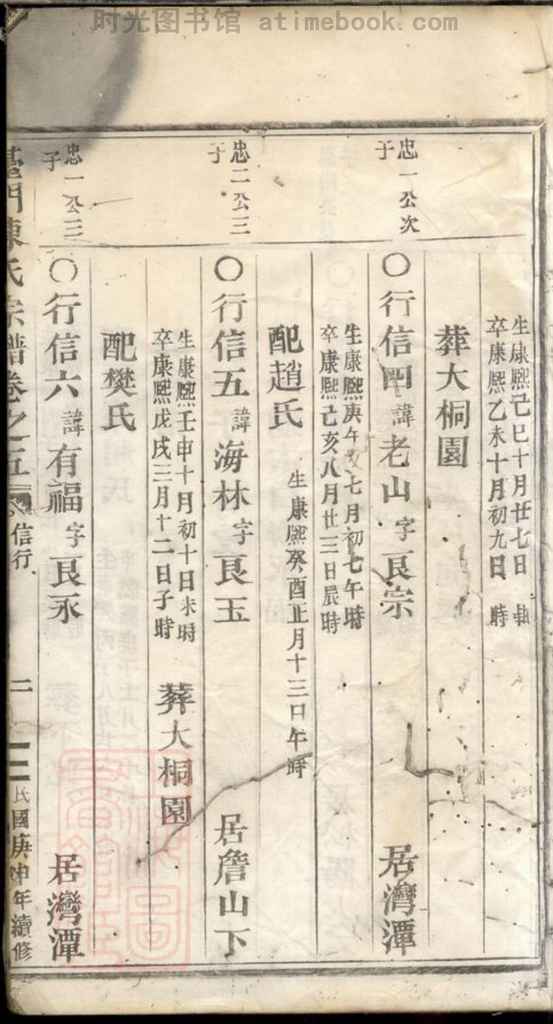 时光图书馆 - atimebook.com
生康熙己巳十月廿七日
卒康熙乙未十月初九日 時
葬大桐園
忠一公次子
〇行信四諱老山字良宗 居灣潭
生康熙庚午 七月初七午時
卒康熙己亥八月廿三日辰時
配趙氏 生康熙癸酉正月十三日午時
忠二公三子
〇行信五諱海林字良玉 居詹山下
生康熙壬申十月初十日未時
卒康熙戊戌三月十二日子時
葬大桐園
配樊氏
忠一公三子
〇行信六諱有福字良永 居灣潭
陳氏宗譜卷之五 信行 二 民國庚申年續修